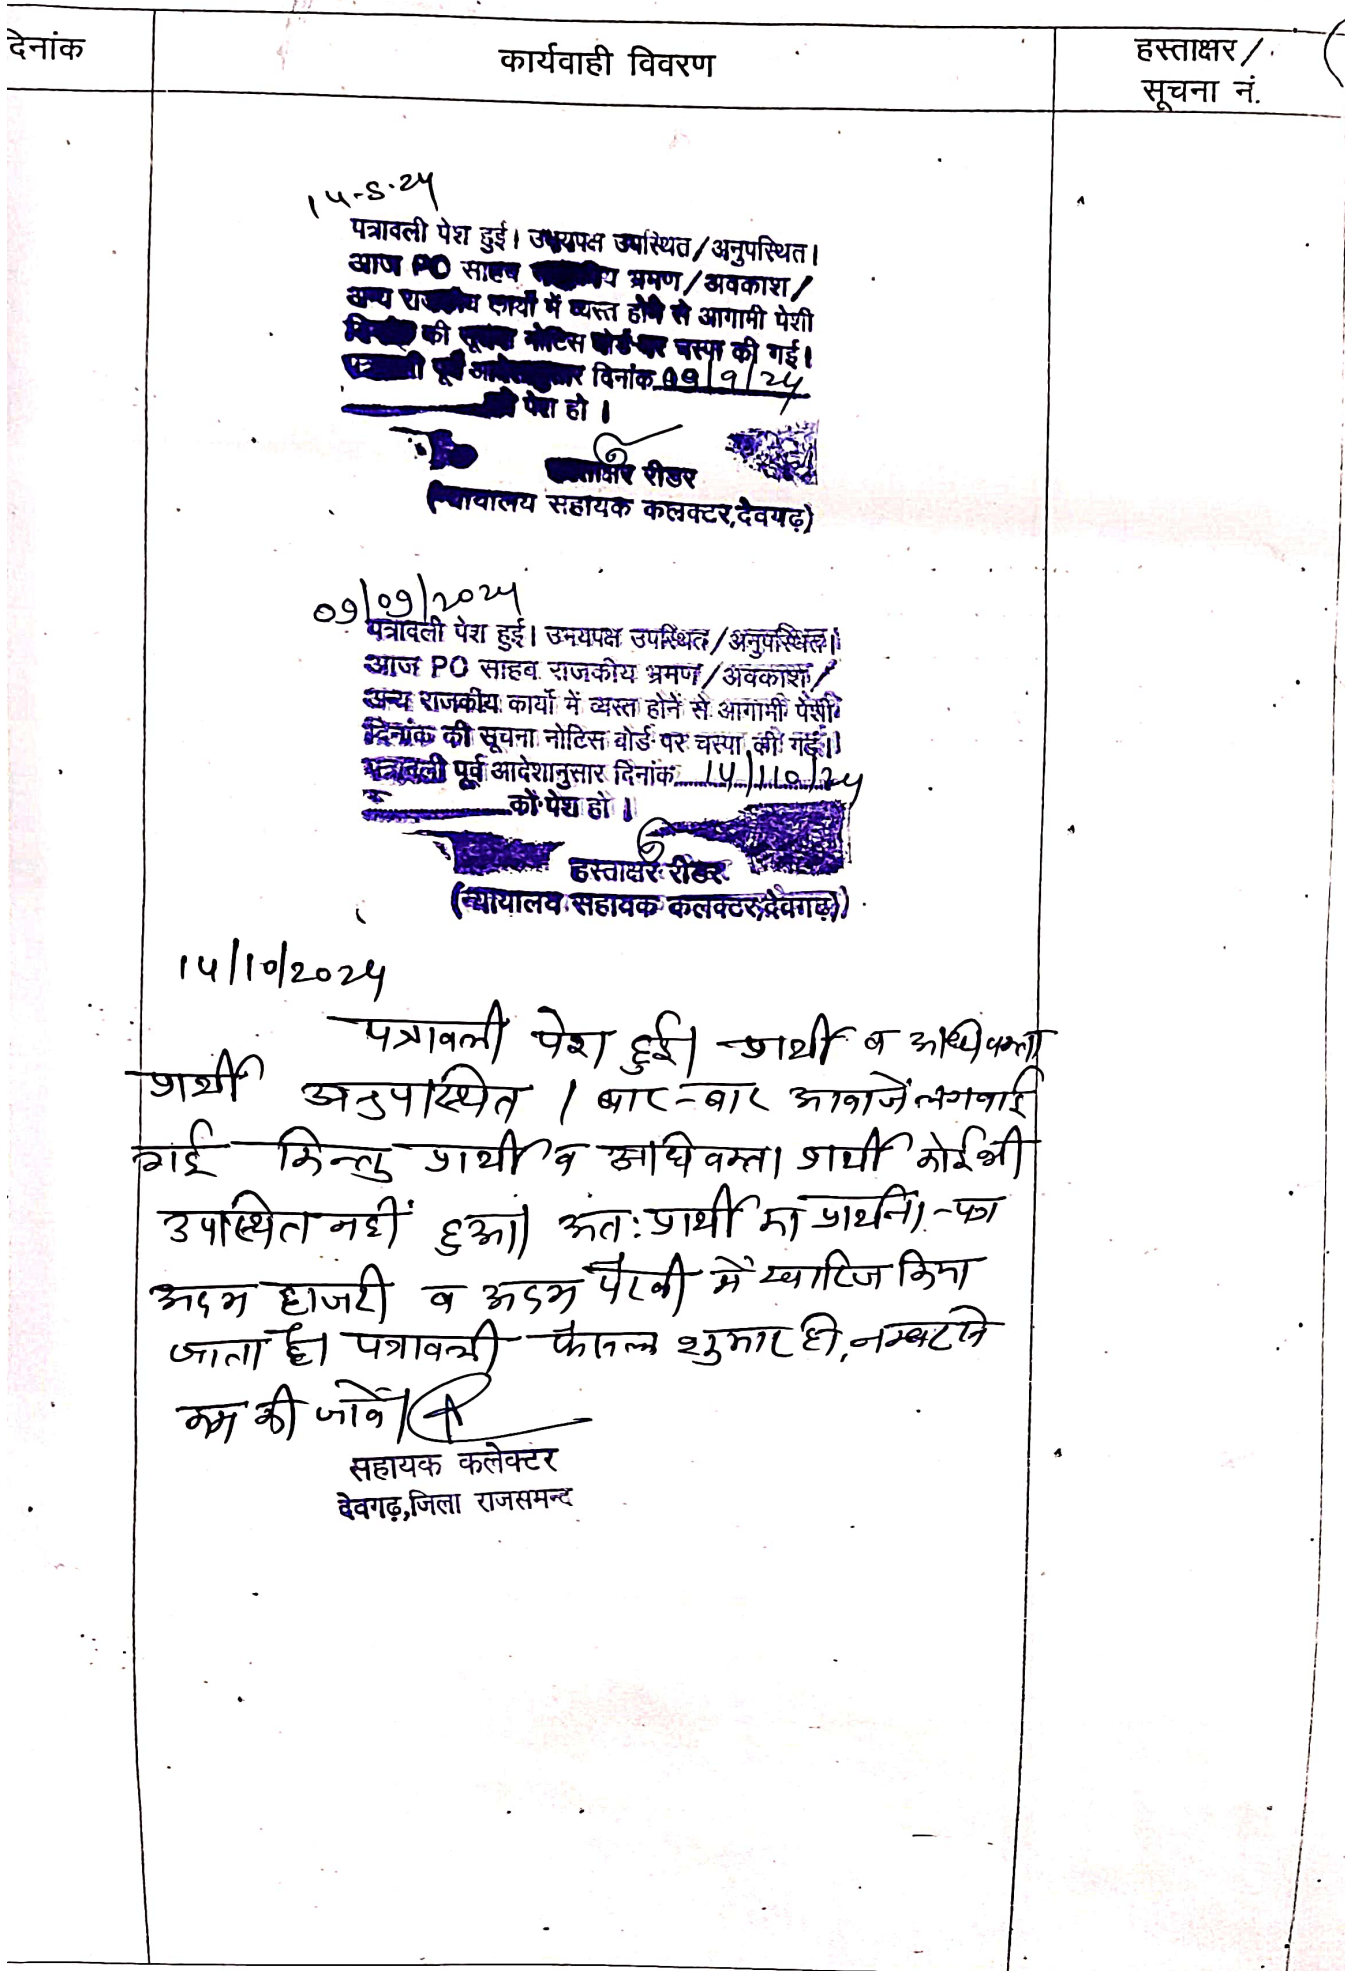 दिनांक
कार्यवाही विवरण
हस्ताक्षर/
सूचना नं.
14-5-24
पत्रावली पेश हुई। उभयपक्ष उपस्थित/अनुपस्थित।
आज PO साहब भ्रमण/अवकाश/
अन्य राजकीय कार्यो में व्यस्त होने से आगामी पेशी
की सूचना नोटिस बोर्ड पर चस्पा की गई।
पत्रावली पूर्व आदेशानुसार दिनांक 09/9/24
को पेश हो।
हस्ताक्षर रीडर
(न्यायालय सहायक कलक्टर,देवगढ़)
09/09/2024
पत्रावली पेश हुई। उभयपक्ष उपस्थित/अनुपस्थित।
आज PO साहब राजकीय भ्रमण/अवकाश/
अन्य राजकीय कार्यो में व्यस्त होनें से आगामी पेशी
दिनांक की सूचना नोटिस बोर्ड पर चस्पा की गई।
पत्रावली पूर्व आदेशानुसार दिनांक 14/10/24
को पेश हो।
हस्ताक्षर रीडर
(न्यायालय सहायक कलक्टर,देवगढ़)
14/10/2024
पत्रावली पेश हुई। प्रार्थी व अधिवक्ता
प्रार्थी अनुपस्थित। बार-बार आवाजें लगवाई
गई किन्तु प्रार्थी व अधिवक्ता प्रार्थी कोई भी
उपस्थित नहीं हुआ। अतः प्रार्थी का प्रार्थना-पत्र
अदम हाजरी व अदम पैरवी में खारिज किया
जाता है। पत्रावली फैसल शुमार हो, नम्बर से
कम की जावें।
सहायक कलेक्टर
देवगढ़,जिला राजसमन्द